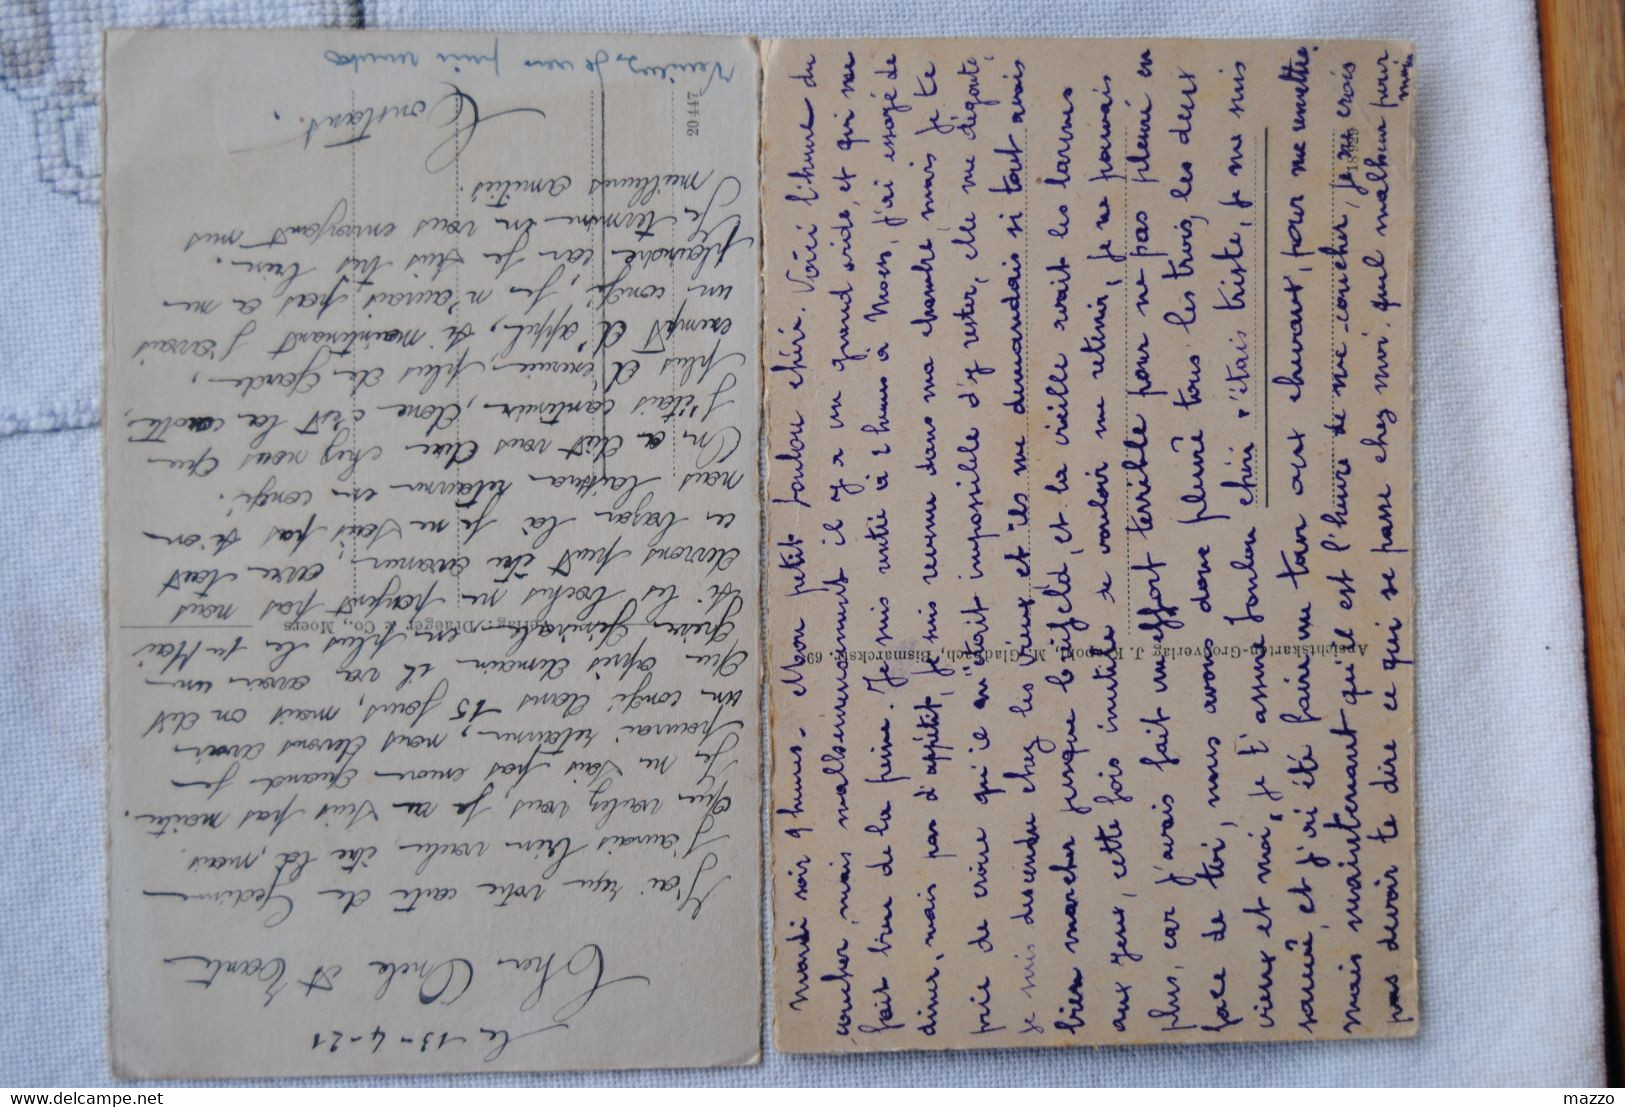 le 13-4-21
Cher Oncle et Tante
J'ai reçu votre carte de Gedinne
J'aurais bien voulu être là, mais
que voulez vous, je ne suis pas maître.
Je ne sais pas encore quand je
pourrai retourner, nous devons avoir
un congé dans 15 jours, mais on dit
que après demain il va avoir un
Grève Générale en plus le 1er Mai
si les boches ne payent pas nous
devrons peut être avancer, avec tout
ce bazar là je ne sais pas si on
nous laissera retourner en congé.
On a dût vous dire chez nous que
j'étais cantinier, donc c'est la carotte,
plus d'exercice, plus de garde,
exempt d'appel, si maintenant j'avais
un congé, je n'aurais pas à me
plaindre car je suis très bien.
Je termine en vous envoyant mes
meilleures amitiés.
Constant.
20447
Verlag: Draeger & Co., Moers
mardi soir 9 heures. Mon petit loulou chéri. Voici l'heure du
coucher, mais malheureusement il y a un grand vide, et qui me
fait bien de la peine. Je suis rentré à 2 heures à Moers, j'ai essayé de
diner, mais pas d'appétit, je suis revenu dans ma chambre, mais je te
prie de croire qu'il m'était impossible d'y rester, elle me dégoute,
je suis descendu chez les vieux et ils me demandais si tout avais
bien marcher jusque et la vieille avait les larmes
aux yeux, cette fois inutile de vouloir me retenir, je ne pouvais
plus, car j'avais fait un effort terrible pour ne pas pleuré en
face de toi, nous avons donc pleuré tous les trois, les deux
vieux et moi, je t'assure loulou chéri c'étais triste, je me suis
sauvé, et j'ai été faire un tour aux chevaux, pour me remettre.
mais maintenant qu'il est l'heure de me coucher, je ne crois
pas devoir te dire ce qui se passe chez moi, quel malheur pour
moi
Ansichtskarten-Großverlag J. M. Gladbach, Bismarckstr. 69